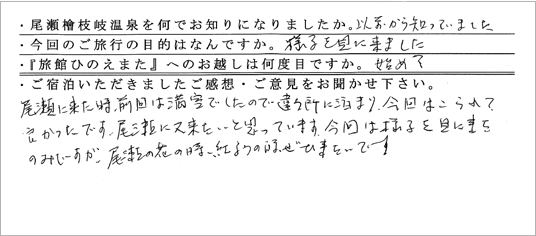 ・尾瀬檜枝岐温泉を何でお知りになりましたか。以前から知っていました
・今回のご旅行の目的はなんですか。 様子を見に来ました
・『旅館ひのえまた』へのお越しは何度目ですか。 始めて
・ご宿泊いただきましたご感想・ご意見をお聞かせ下さい。
尾瀬に来た時、前回は満室でしたので違う所に泊まり、今回はこられて
良かったです。尾瀬に又来たいと思っています。今回は様子を見に来た
のみですが、尾瀬の花の時、紅葉の時ぜひ来たいです!